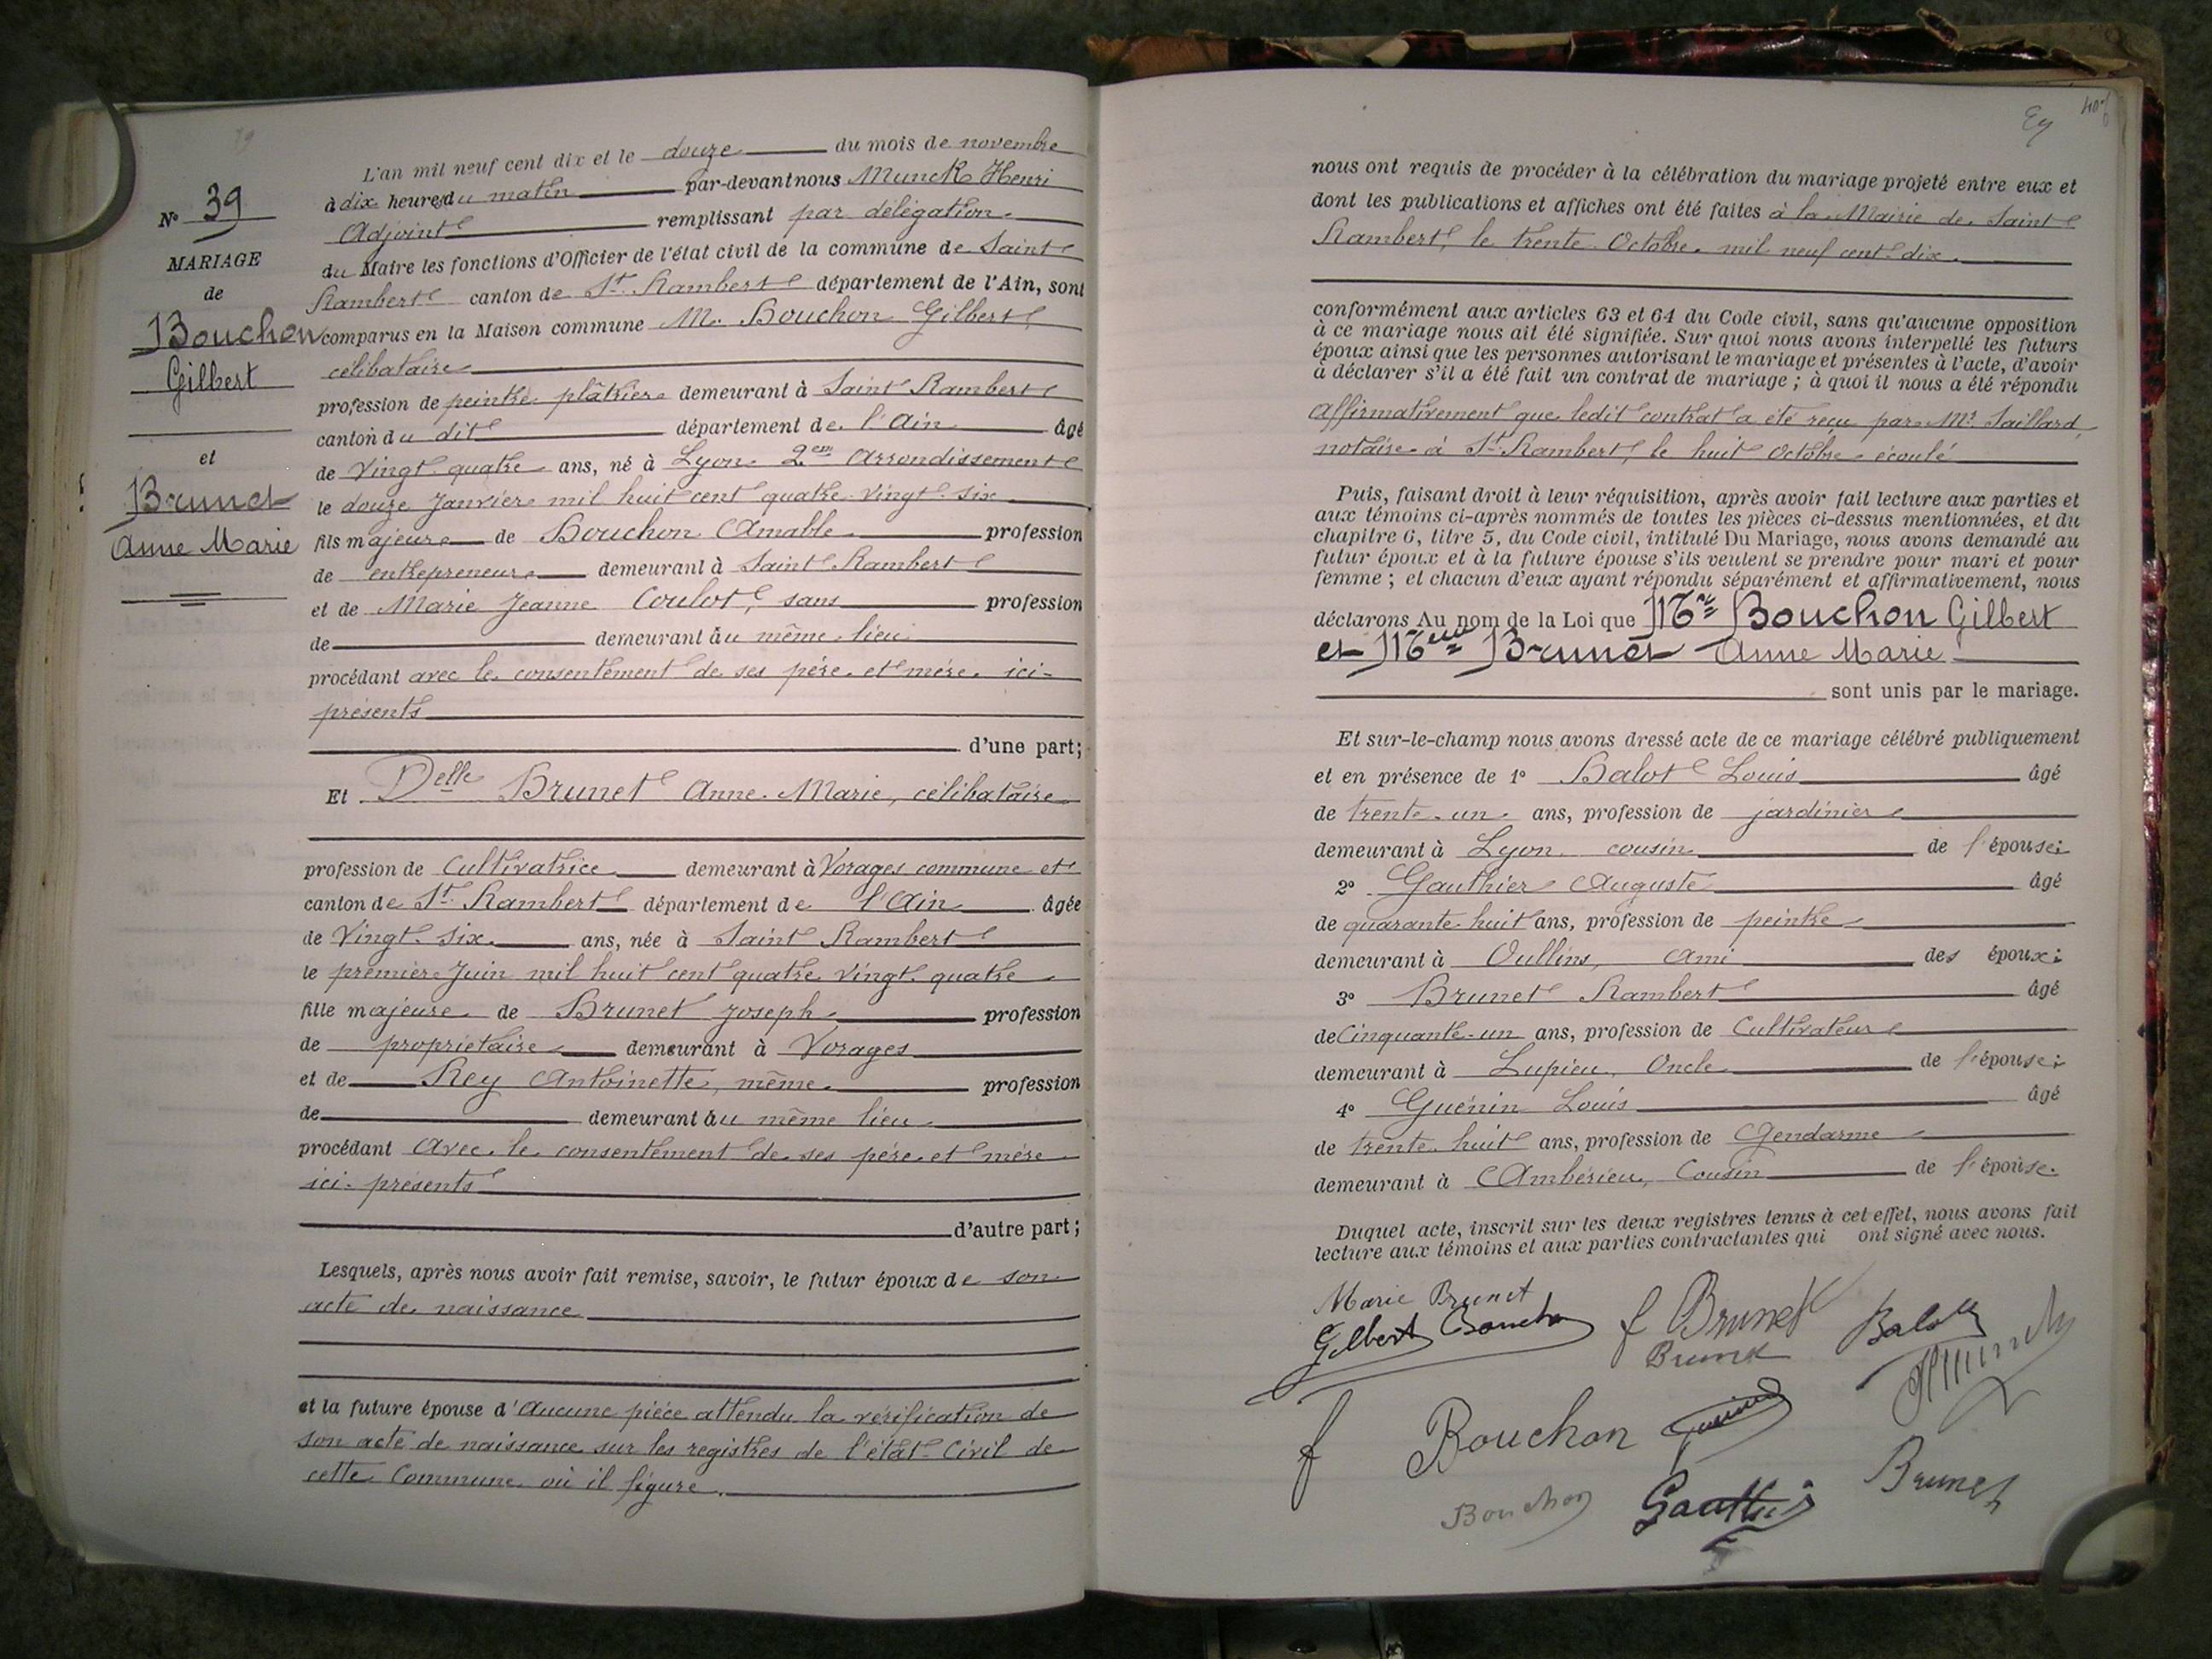 N° 39
MARIAGE
de
Bouchon
Gilbert
et
Brunet
Anne Marie
L'an mil neuf cent dix et le douze du mois de novembre
à dix heures du matin par-devant nous Munck Henri
Adjoint remplissant par délégation
du Maire les fonctions d'Officier de l'état civil de la commune de Saint
Rambert canton de St. Rambert département de l'Ain, sont
comparus en la Maison commune M. Bouchon Gilbert,
célibataire
profession de peintre plâtrier demeurant à Saint Rambert
canton du dit département de l'Ain âgé
de Vingt quatre ans, né à Lyon 2em Arrondissement
le douze Janvier mil huit cent quatre vingt six
fils majeur de Bouchon Amable profession
de entrepreneur demeurant à Saint Rambert
et de Marie Jeanne Coulot, sans profession
de demeurant au même lieu
procédant avec le consentement de ses père et mère ici-
présents
d'une part;
Et Delle Brunet Anne Marie, célibataire
profession de Cultivatrice demeurant à Vorages commune et
canton de St. Rambert département de l'Ain âgée
de Vingt six ans, née à Saint Rambert
le premier Juin mil huit cent quatre vingt quatre
fille majeure de Brunet Joseph profession
de propriétaire demeurant à Vorages
et de Rey Antoinette, même profession
de demeurant au même lieu
procédant avec le consentement de ses père et mère
ici-présents
d'autre part;
Lesquels, après nous avoir fait remise, savoir, le futur époux de son
acte de naissance
et la future épouse d'aucune pièce attendu la vérification de
son acte de naissance sur les registres de l'état-Civil de
cette Commune où il figure.
nous ont requis de procéder à la célébration du mariage projeté entre eux et
dont les publications et affiches ont été faites à la Mairie de Saint
Rambert, le trente Octobre mil neuf cent dix.
conformément aux articles 63 et 64 du Code civil, sans qu'aucune opposition
à ce mariage nous ait été signifiée. Sur quoi nous avons interpellé les futurs
époux ainsi que les personnes autorisant le mariage et présentes à l'acte, d'avoir
à déclarer s'il a été fait un contrat de mariage ; à quoi il nous a été répondu
affirmativement que ledit contrat a été reçu par Me Saillard,
notaire à St. Rambert, le huit Octobre écoulé
Puis, faisant droit à leur réquisition, après avoir fait lecture aux parties et
aux témoins ci-après nommés de toutes les pièces ci-dessus mentionnées, et du
chapitre 6, titre 5, du Code civil, intitulé Du Mariage, nous avons demandé au
futur époux et à la future épouse s'ils veulent se prendre pour mari et pour
femme ; et chacun d'eux ayant répondu séparément et affirmativement, nous
déclarons Au nom de la Loi que Mr Bouchon Gilbert
et Melle Brunet Anne Marie
sont unis par le mariage.
Et sur-le-champ nous avons dressé acte de ce mariage célébré publiquement
et en présence de 1° Balot Louis âgé
de trente-un ans, profession de jardinier
demeurant à Lyon cousin de l'épouse;
2° Gauthier Auguste âgé
de quarante huit ans, profession de peintre
demeurant à Oullins, Ami des époux;
3° Brunet Rambert âgé
de Cinquante-un ans, profession de Cultivateur
demeurant à Lupieu, Oncle de l'épouse;
4° Guénin Louis âgé
de trente huit ans, profession de Gendarme
demeurant à Ambérieu, Cousin de l'épouse.
Duquel acte, inscrit sur les deux registres tenus à cet effet, nous avons fait
lecture aux témoins et aux parties contractantes qui ont signé avec nous.
Marie Brunet
Gilbert Bouchon
f Brunet
Brunet
Balot
Munck
f Bouchon
Guénin
Bouchon
Gauthier
Brunet